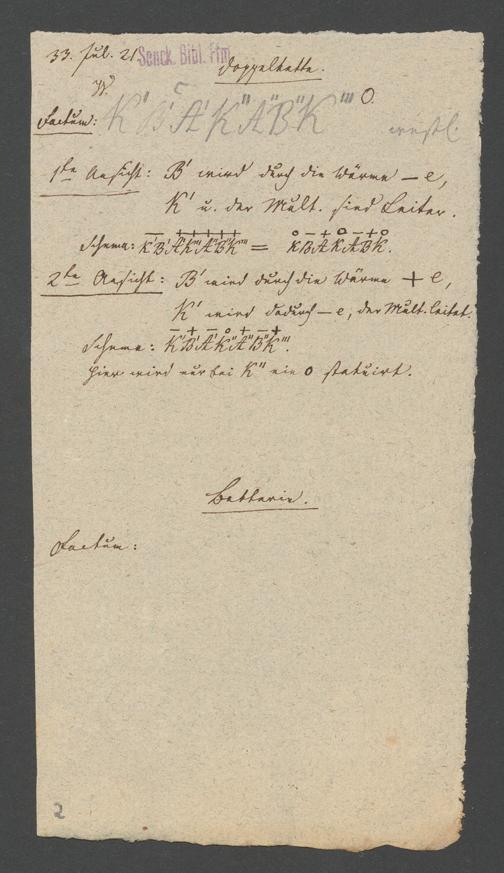 33. Jul. 21. Senck. Bibl. Ffm
Doppelkette.
W.
Factum: K' B' A' K" A" B" K"' O westl.
1te Ansicht: B' wird durch die Wärme – e,
K' u. der Mult. sind Leiter.
Schema: K'B'A'K"A"B"K"' = KBAKABK.
2te Ansicht: B' wird durch die Wärme + e,
K' wird dadurch – e, der Mult. leitet.
Schema: K'B'A'K"A"B"K"'.
Hier wird nur bei K" ein 0 statuirt.
Batterie.
Factum:
2